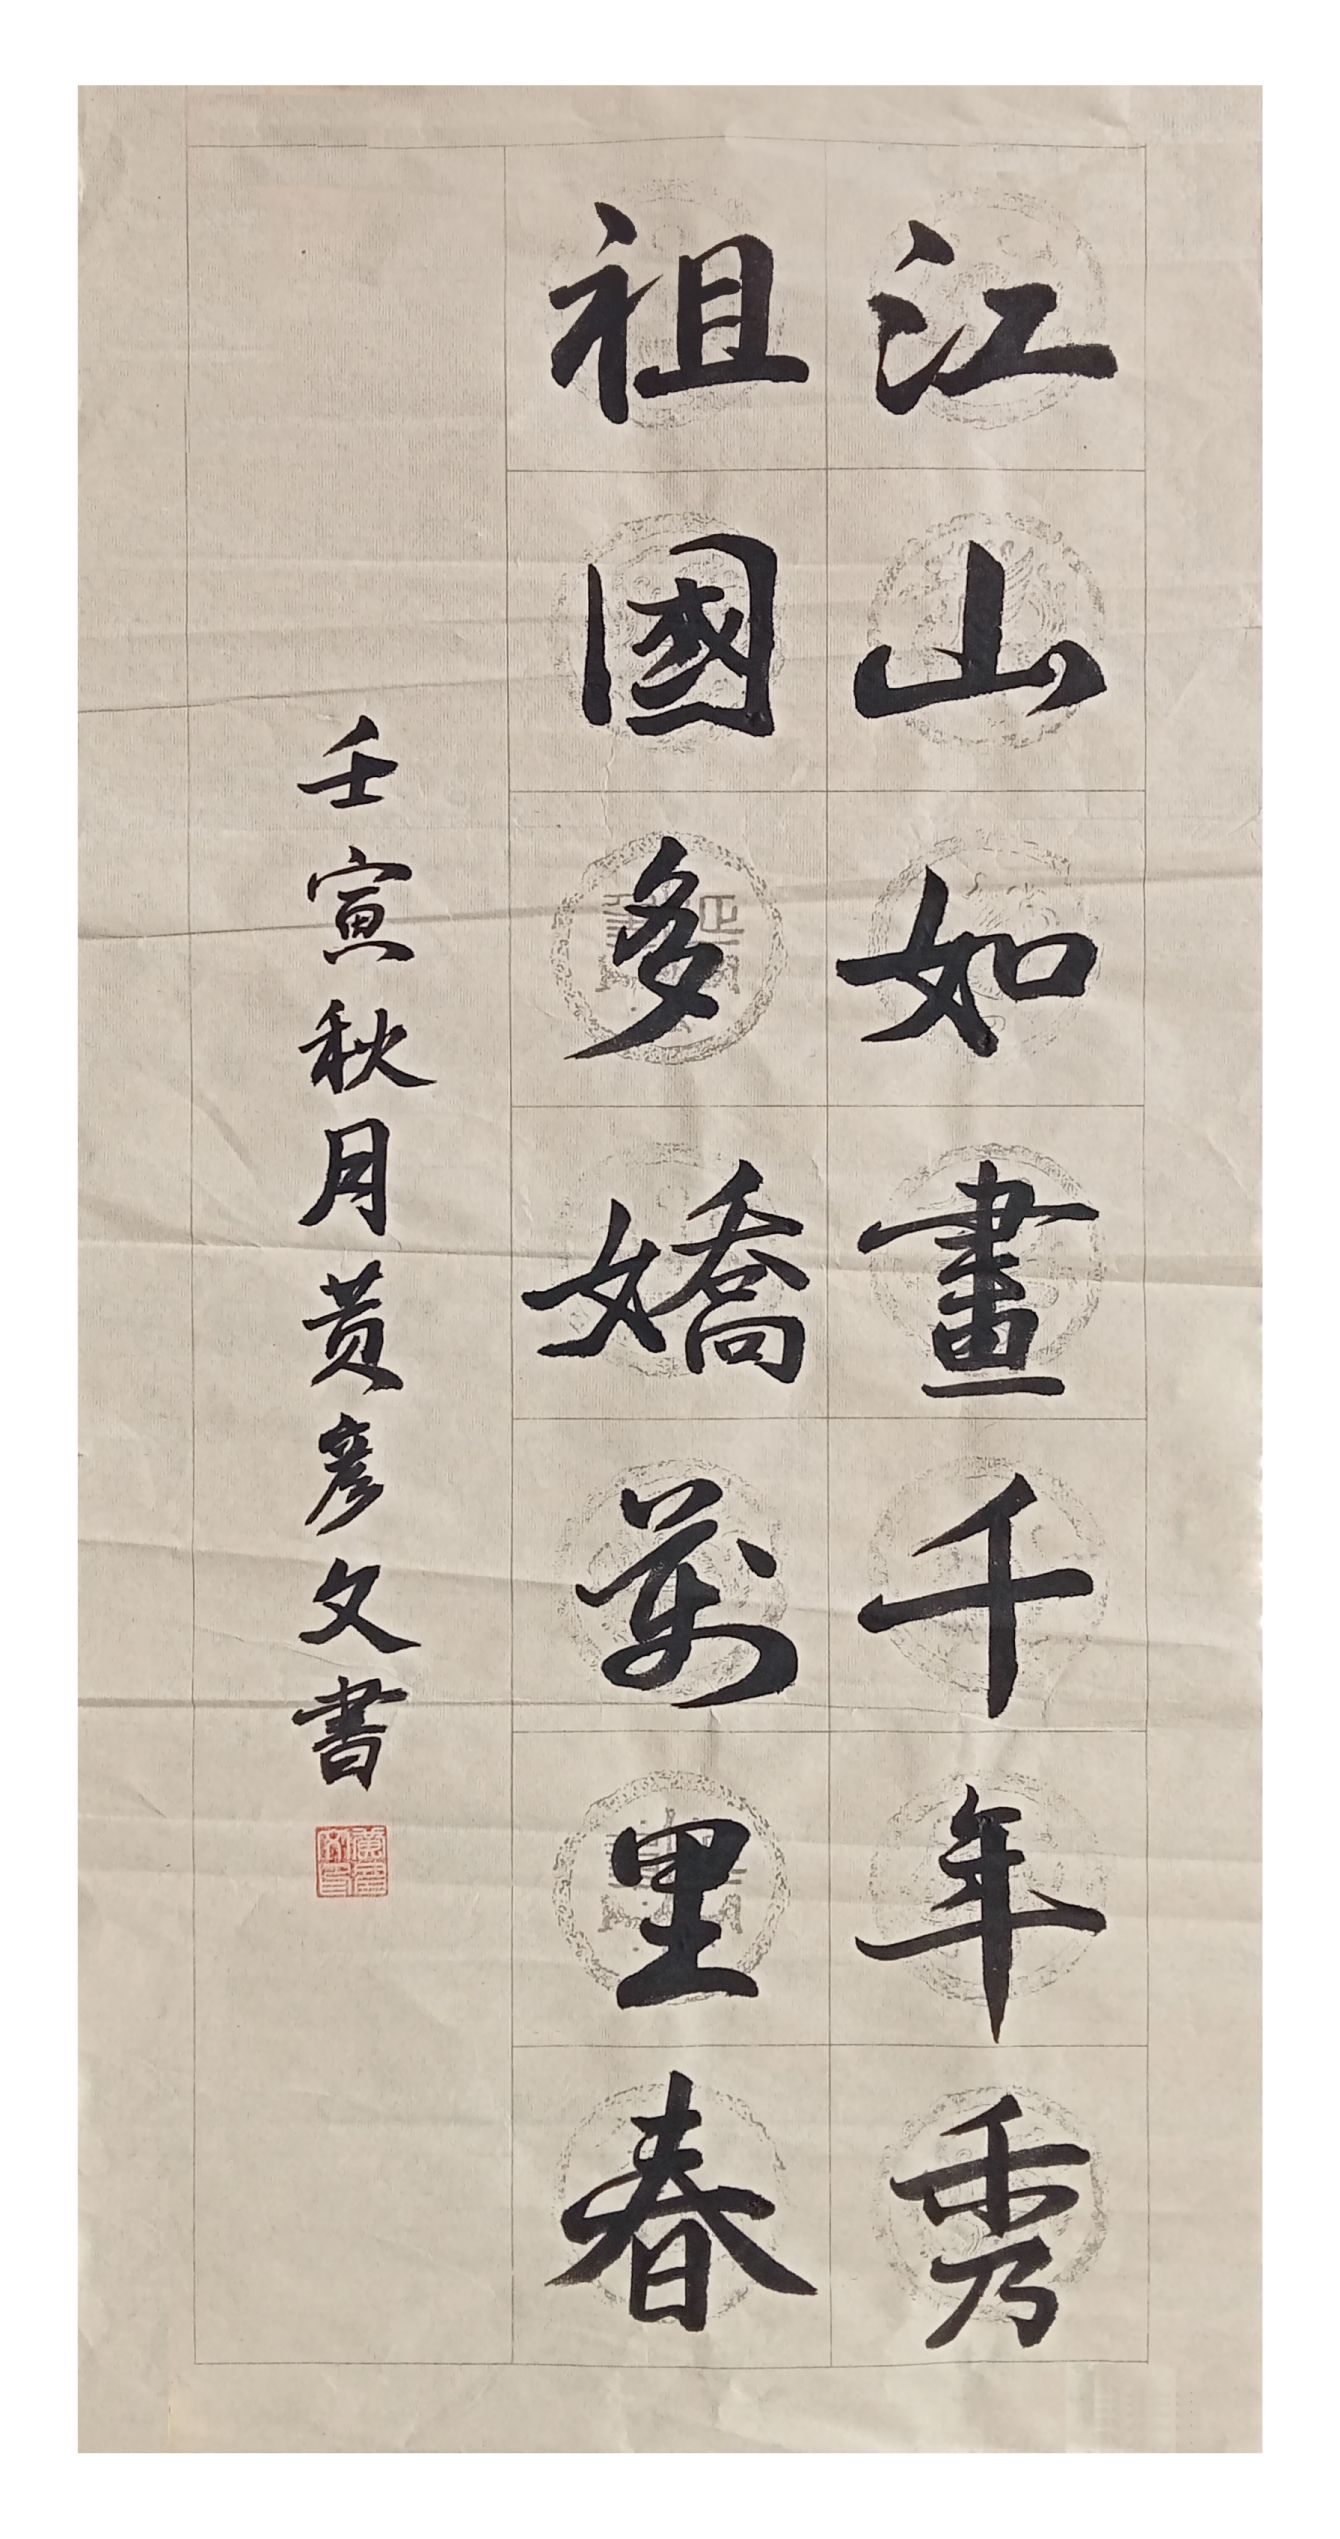 江山如畫千年秀
祖國多嬌萬里春
壬寅秋月黄彦文書